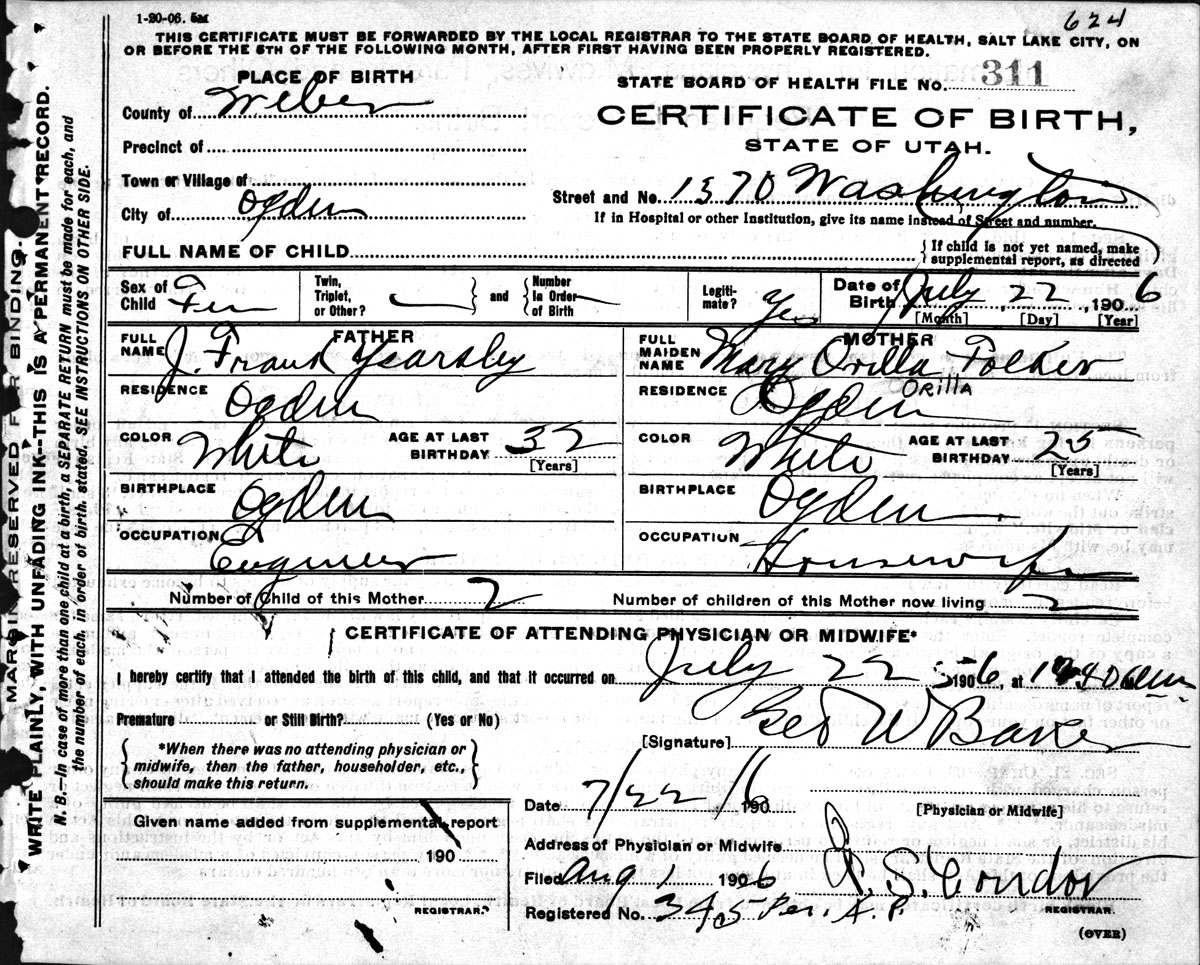 1-20-06. 5m
624
THIS CERTIFICATE MUST BE FORWARDED BY THE LOCAL REGISTRAR TO THE STATE BOARD OF HEALTH, SALT LAKE CITY, ON
OR BEFORE THE 5TH OF THE FOLLOWING MONTH, AFTER FIRST HAVING BEEN PROPERLY REGISTERED.
PLACE OF BIRTH
County of Weber
Precinct of
Town or Village of
City of Ogden
STATE BOARD OF HEALTH FILE NO. 311
CERTIFICATE OF BIRTH,
STATE OF UTAH.
Street and No. 1370 Washington
If in Hospital or other Institution, give its name instead of Street and number.
FULL NAME OF CHILD
{ If child is not yet named, make
supplemental report, as directed
Sex of Child Fem
Twin, Triplet, or Other? } and { Number In Order of Birth
Legiti-mate? Yes
Date of Birth July 22, 1906
[Month] [Day] [Year]
FATHER
FULL NAME J. Frank Yearsley
RESIDENCE Ogden
COLOR White AGE AT LAST BIRTHDAY 32
[Years]
BIRTHPLACE Ogden
OCCUPATION Engineer
MOTHER
FULL MAIDEN NAME Mary Orilla Folker
ORILLA
RESIDENCE Ogden
COLOR White AGE AT LAST BIRTHDAY 25
[Years]
BIRTHPLACE Ogden
OCCUPATION Housewife
Number of Child of this Mother 2 Number of children of this Mother now living 2
CERTIFICATE OF ATTENDING PHYSICIAN OR MIDWIFE*
I hereby certify that I attended the birth of this child, and that it occurred on July 22 1906, at
Premature or Still Birth? (Yes or No)
{ *When there was no attending physician or
midwife, then the father, householder, etc.,
should make this return. }
[Signature] Geo W Baker
[Physician or Midwife]
Given name added from supplemental report
190
REGISTRAR.
Date 7/22/6 190
Address of Physician or Midwife.
Filed Aug 1 1906
Registered No. 345 Per. A. P.
REGISTRAR.
(OVER)
MARGIN RESERVED FOR BINDING.
WRITE PLAINLY, WITH UNFADING INK—THIS IS A PERMANENT RECORD.
N. B.—In case of more than one child at a birth, a SEPARATE RETURN must be made for each, and
the number of each, in order of birth, stated. SEE INSTRUCTIONS ON OTHER SIDE.